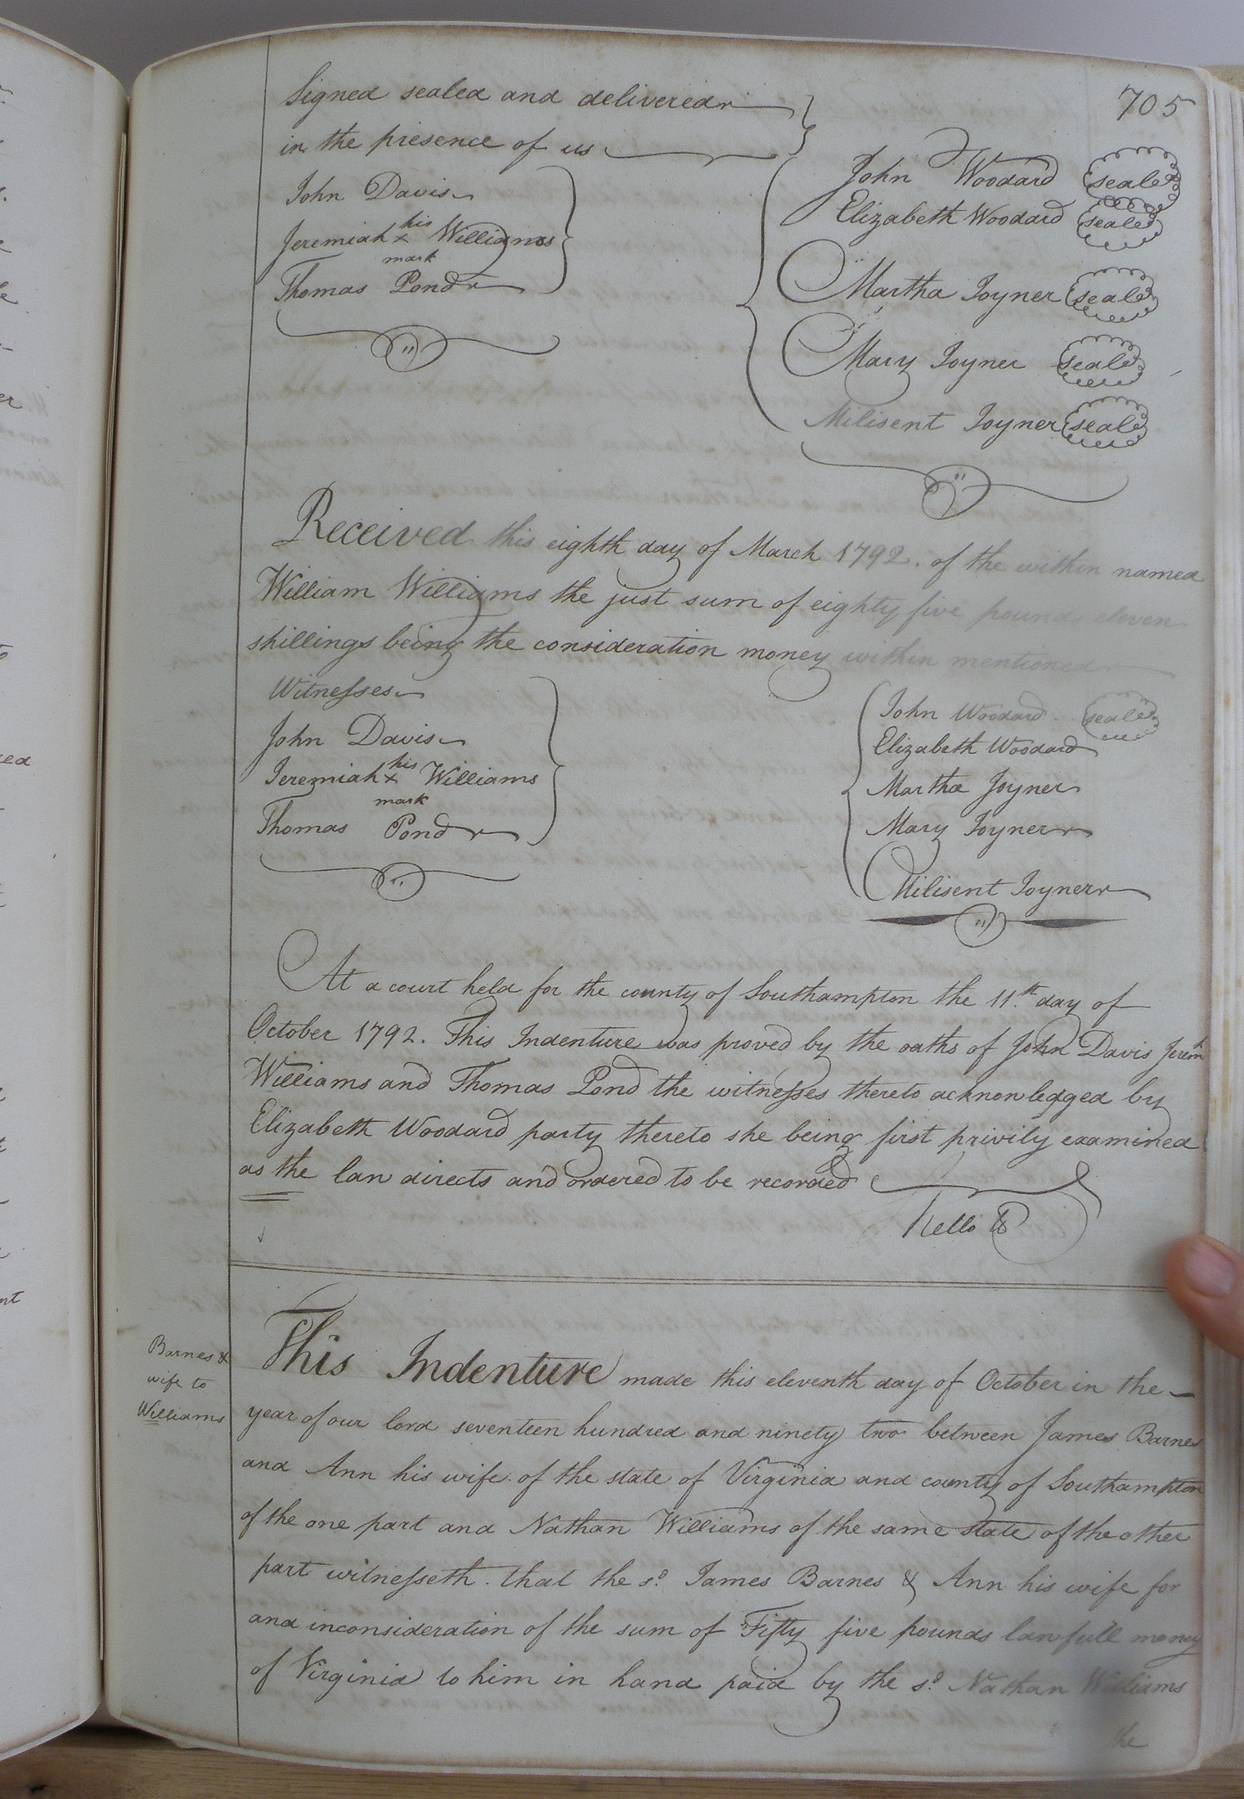 705
Signed sealed and delivered
in the presence of us
John Davis
Jeremiah his x mark Williams
Thomas Pond
John Woodard seal
Elizabeth Woodard seal
Martha Joyner seal
Mary Joyner seal
Milisent Joyner seal
Received this eighth day of March 1792. of the within named
William Williams the just sum of eighty five pounds eleven
shillings being the consideration money within mentioned
Witnesses
John Davis
Jeremiah his x mark Williams
Thomas Pond
John Woodard seal
Elizabeth Woodard
Martha Joyner
Mary Joyner
Milisent Joyner
At a court held for the county of Southampton the 11.th day of
October 1792. This Indenture was proved by the oaths of John Davis Jerem.h
Williams and Thomas Pond the witnesses thereto acknowledged by
Elizabeth Woodard party thereto she being first privily examined
as the law directs and ordered to be recorded
Barnes &
wife to
Williams
This Indenture made this eleventh day of October in the
year of our lord seventeen hundred and ninety two between James Barnes
and Ann his wife of the state of Virginia and county of Southampton
of the one part and Nathan Williams of the same state of the other
part witnesseth. that the s.d James Barnes & Ann his wife for
and inconsideration of the sum of Fifty five pounds lawfull money
of Virginia to him in hand paid by the s.d Nathan Williams
the